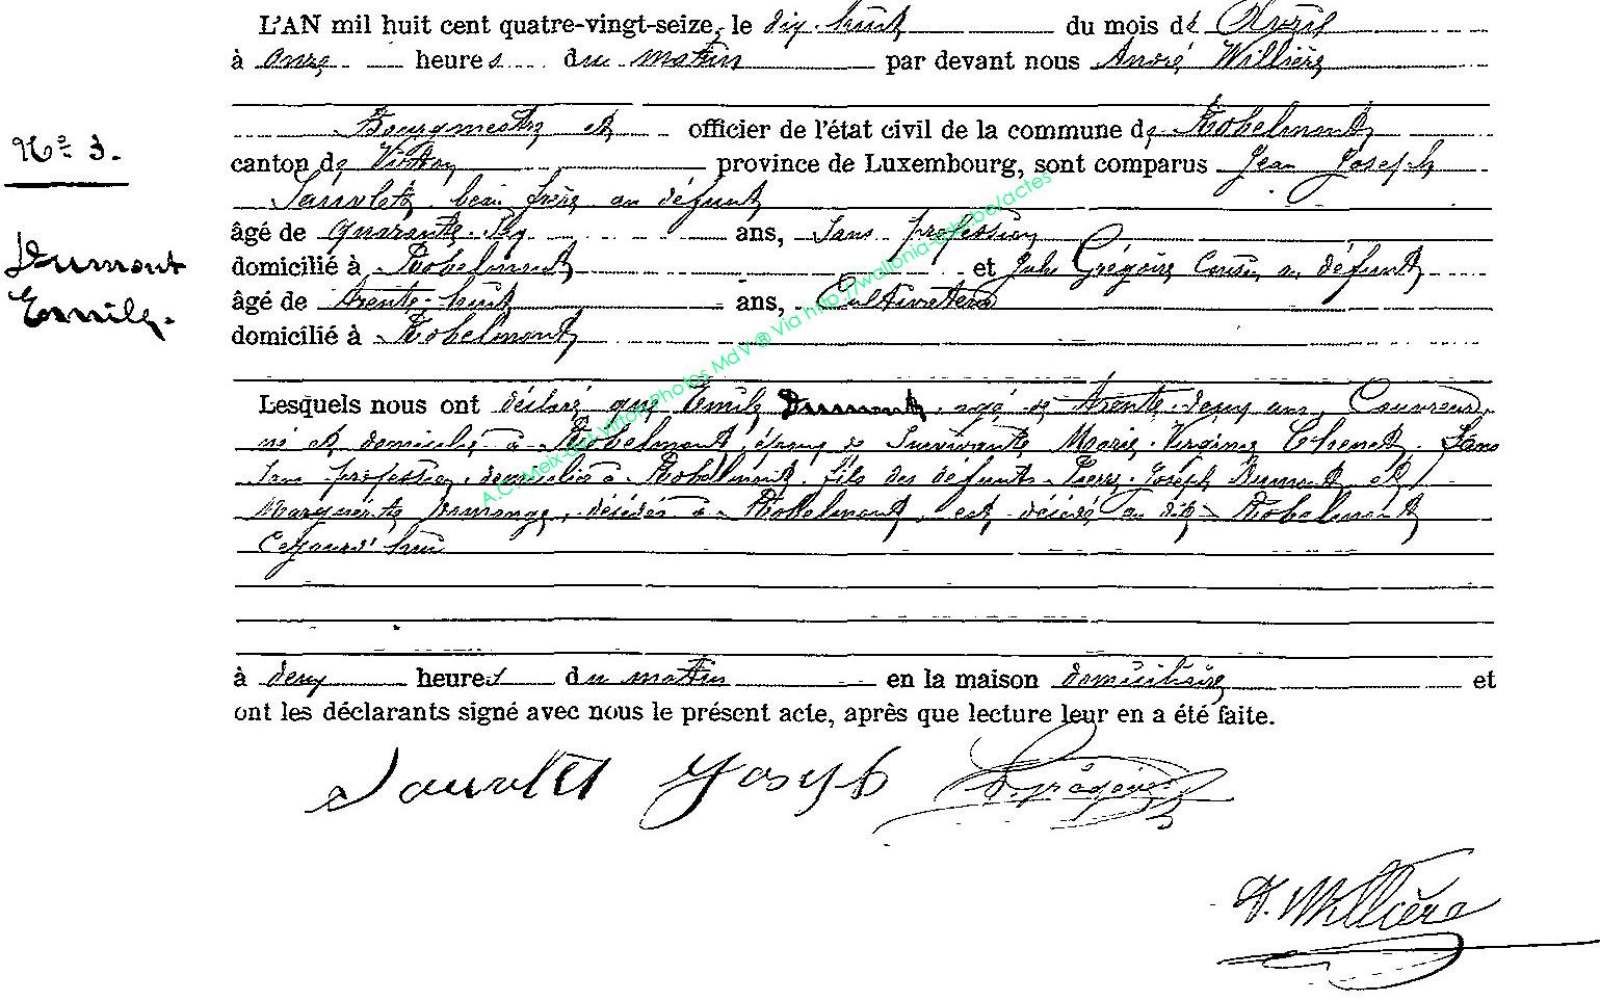 L'AN mil huit cent quatre-vingt-seize, le dix-huit du mois de Avril
à onze heures du matin par devant nous André Willière
Bourgmestre et officier de l'état civil de la commune de Robelmont
N° 3.
canton de Virton province de Luxembourg, sont comparus Jean Joseph
beau frère au défunt
âgé de quarante-six ans, sans profession
Dumont
Emile.
domicilié à Robelmont et Jules Grégoire Cousin au défunt
âgé de trente-huit ans, Cultivateur
domicilié à Robelmont
Lesquels nous ont déclaré que Emile Dumont, agé de trente-deux ans, Couvreur,
né et domicilié à Robelmont, époux de Survivante Marie-Virginie Thenet. Sans
sans profession, domiciliée à Robelmont, fils des défunts Pierre-Joseph Dumont et
Marguerite décédés à Robelmont, est décédé au dit Robelmont
Cejourd'hui
à deux heures du matin en la maison domiciliaire et
ont les déclarants signé avec nous le présent acte, après que lecture leur en a été faite.
Joseph Grégoire
A. Willière
A.C. Meix-dvt-Virton Photos MdV ® Via http://wallonia-asbl.be/actes